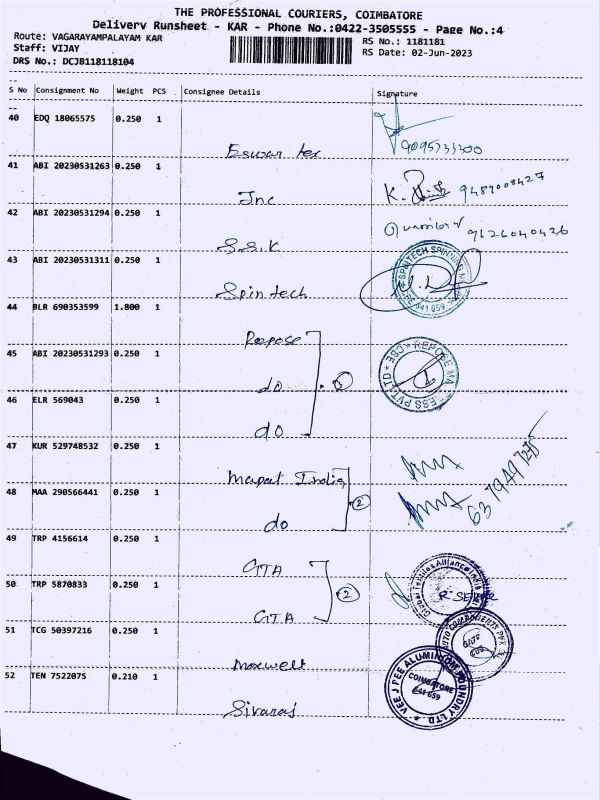 THE PROFESSIONAL COURIERS, COIMBATORE
Delivery Runsheet - KAR - Phone No.:0422-3505555 - Page No.:4
Route: VAGARAYAMPALAYAM KAR
RS No.: 1181181
Staff: VIJAY
RS Date: 02-Jun-2023
DRS No.: DCJB118118104
S No Consignment No Weight PCS Consignee Details Signature
40 EDQ 18065575 0.250 1
Eswar tex
41 ABI 20230531263 0.250 1
Inc K. 9489008427
42 ABI 20230531294 0.250 1
S.S.K 9626040426
43 ABI 20230531311 0.250 1
Spintech
44 BLR 690353599 1.800 1
Repose
45 ABI 20230531293 0.250 1
do
46 ELR 569043 0.250 1
do
47 KUR 529748532 0.250 1
Mapal India
48 MAA 290566441 0.250 1
do 2
49 TRP 4156614 0.250 1
GTA
50 TRP 5870833 0.250 1
GTA 2
R. SEKAR
51 TCG 50397216 0.250 1
Maxwell
52 TEN 7522075 0.210 1
Sivaraj
VEE J PEE ALUMINIUM FOUNDRY LTD.
COIMBATORE
641 659